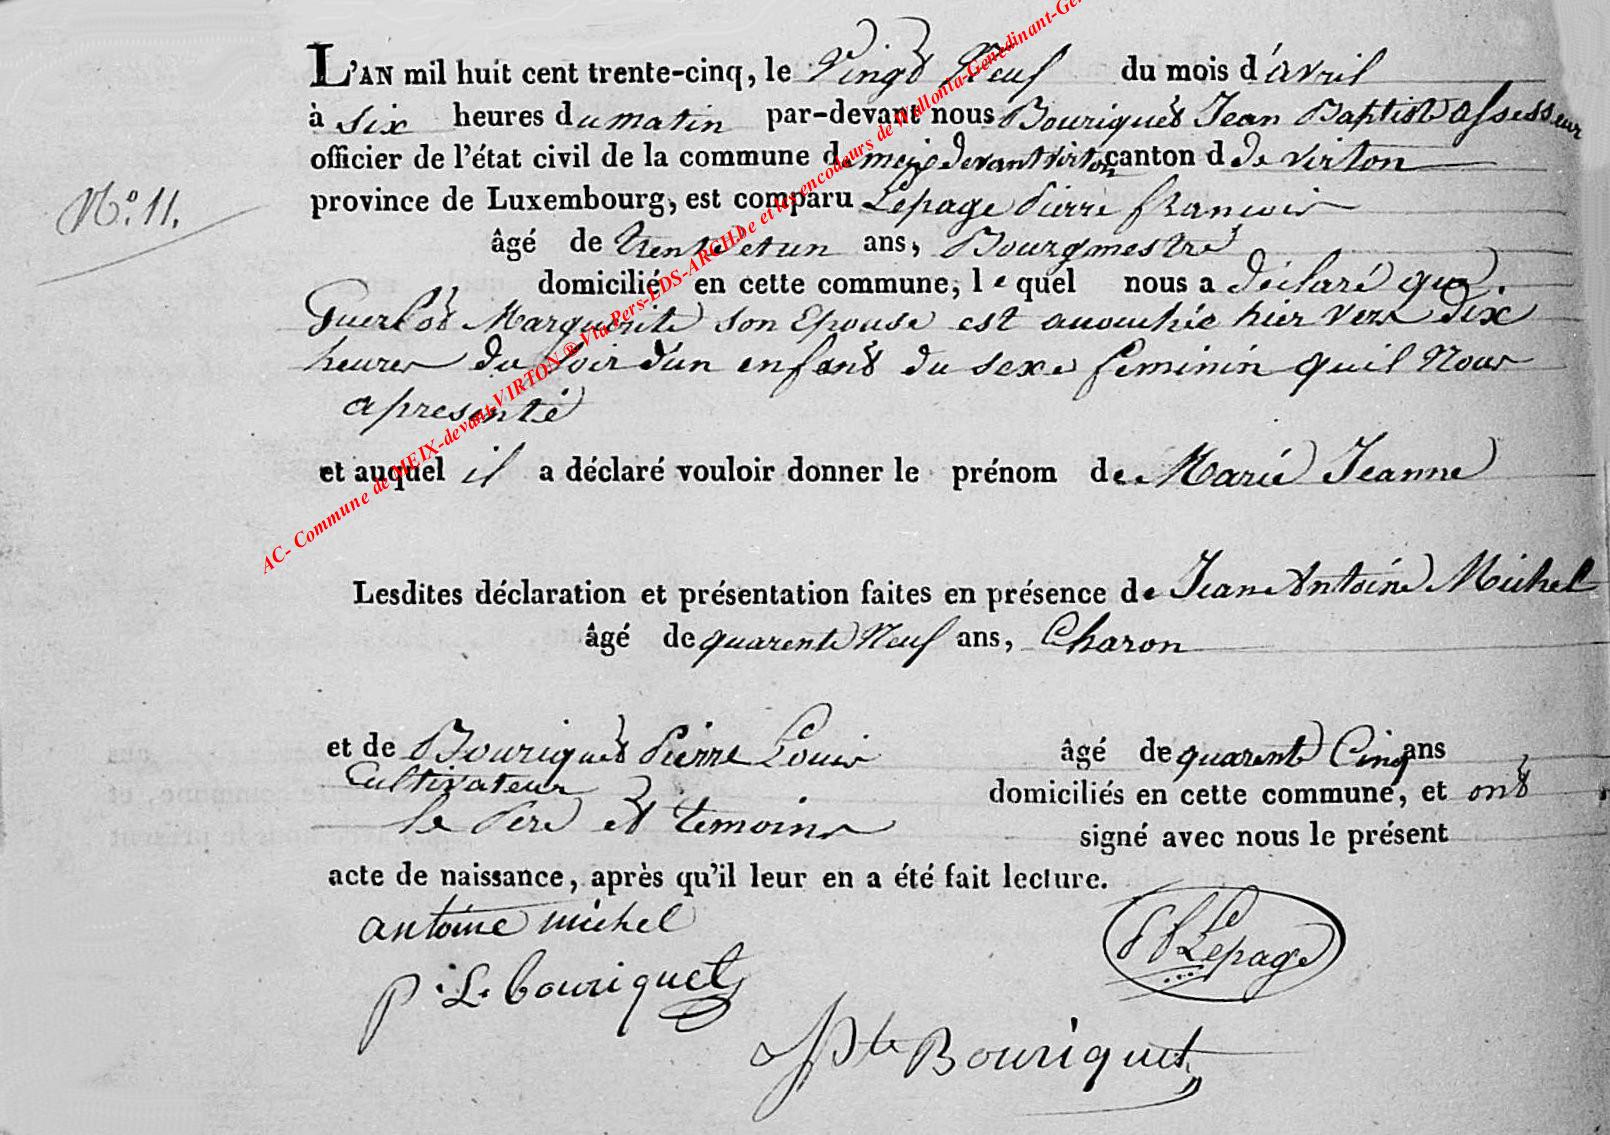 L'AN mil huit cent trente-cinq, le Vingt Neuf du mois d'avril
à Six heures du matin par-devant nous Bouriquet Jean Baptiste assesseur
officier de l'état civil de la commune de meix devant virton canton d de virton
N.° 11. province de Luxembourg, est comparu Lepage Pierre françois
âgé de trente et un ans, Bourgmestre
domicilié en cette commune, lequel nous a déclaré que
Guerlot Marguerite son Epouse est accouchée hier vers dix
heures du soir d'un enfant du sexe feminin quil Nous
a presenté
et auquel il a déclaré vouloir donner le prénom de Marie Jeanne
Lesdites déclaration et présentation faites en présence de Jean Antoine Michel
âgé de quarente Neuf ans, Charon
et de Bouriquet Pierre Louis âgé de quarente Cinq ans
Cultivateur domiciliés en cette commune, et ont
le Pere et temoins signé avec nous le présent
acte de naissance, après qu'il leur en a été fait lecture.
antoine michel
P f Lepage
p. L. bouriquet
JPte Bouriquet
AC- Commune de MEIX-devant-VIRTON ® Via Pers-LDS-ARCH.be et les encodeurs de Wallonia-Genedinant-Gen